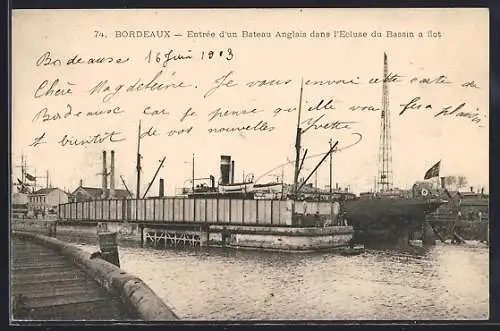 74. BORDEAUX — Entrée d'un Bateau Anglais dans l'Ecluse du Bassin a flot
Bordeaux 16 Juin 1903
Chère Magdeleine, Je vous envoie cette carte de
Bordeaux car je pense qu'elle vous fera plaisir
A bientôt de vos nouvelles Yvette